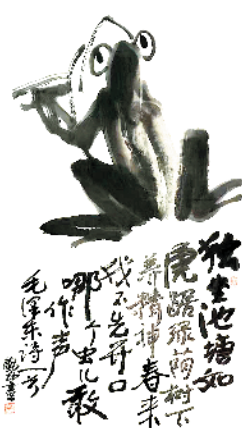 独坐池塘如
虎踞绿荫树下
养精神春来
我不先开口
哪个虫儿敢
作声
毛泽东诗一首